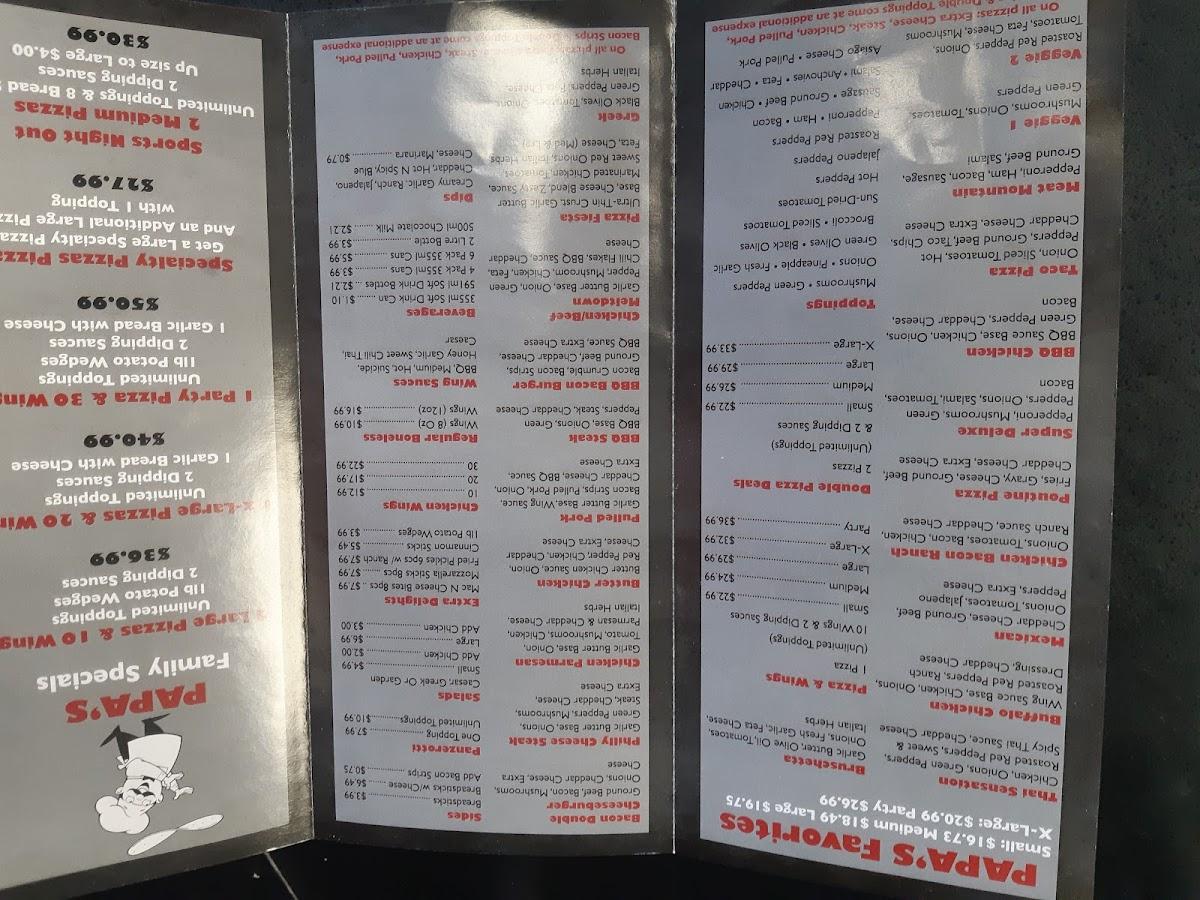 PAPA'S Favorites
Small: $16.73 Medium $18.49 Large $19.75
X-Large: $20.99 Party $26.99
Thai Sensation
Chicken, Onions, Green Peppers,
Roasted Red Peppers, Sweet &
Spicy Thai Sauce, Cheddar Cheese
Buffalo Chicken
Wing Sauce Base, Chicken, Onions,
Roasted Red Peppers, Ranch
Dressing, Cheddar Cheese
Mexican
Cheddar Cheese, Ground Beef,
Onions, Tomatoes, Jalapeno
Peppers, Extra Cheese
Chicken Bacon Ranch
Onions, Tomatoes, Bacon, Chicken,
Ranch Sauce, Cheddar Cheese
Poutine Pizza
Fries, Gravy, Cheese, Ground Beef,
Cheddar Cheese, Extra Cheese
Super Deluxe
Pepperoni, Mushrooms, Green
Peppers, Onions, Salami, Tomatoes,
Bacon
BBQ Chicken
BBQ Sauce Base, Chicken, Onions,
Green Peppers, Cheddar Cheese,
Bacon
Taco Pizza
Onion, Sliced Tomatoes, Hot
Peppers, Ground Beef, Taco Chips,
Cheddar Cheese, Extra Cheese
Meat Mountain
Pepperoni, Ham, Bacon, Sausage,
Ground Beef, Salami
Veggie 1
Mushrooms, Onions, Tomatoes,
Green Peppers
Veggie 2
Roasted Red Peppers, Onions,
Tomatoes, Feta Cheese, Mushrooms
Bruschetta
Garlic Butter, Olive Oil, Tomatoes,
Onions, Fresh Garlic, Feta Cheese,
Italian Herbs
Pizza & Wings
1 Pizza
(Unlimited Toppings)
10 Wings & 2 Dipping Sauces
Small ........ $22.99
Medium ........ $24.99
Large ........ $29.99
X-Large ........ $32.99
Party ........ $36.99
Double Pizza Deals
2 Pizzas
(Unlimited Toppings)
& 2 Dipping Sauces
Small ........ $22.99
Medium ........ $26.99
Large ........ $29.99
X-Large ........ $33.99
Toppings
Mushrooms • Green Peppers
Onions • Pineapple • Fresh Garlic
Green Olives • Black Olives
Broccoli • Sliced Tomatoes
Sun-Dried Tomatoes
Hot Peppers
Jalapeno Peppers
Roasted Red Peppers
Pepperoni • Ham • Bacon
Sausage • Ground Beef • Chicken
Salami • Anchovies • Feta • Cheddar
Asiago Cheese • Pulled Pork
On all pizzas: Extra Cheese, Steak, Chicken, Pulled Pork,
& Double Toppings come at an additional expense
Bacon Double
Cheeseburger
Ground Beef, Bacon, Mushrooms,
Onions, Cheddar Cheese, Extra
Cheese
Philly Cheese Steak
Garlic Butter Base, Onions,
Green Peppers, Mushrooms,
Steak, Cheddar Cheese,
Extra Cheese
Chicken Parmesan
Garlic Butter Base, Onion,
Tomato, Mushrooms, Chicken,
Parmesan & Cheddar Cheese,
Italian Herbs
Butter Chicken
Butter Chicken Sauce, Onion,
Red Pepper, Chicken, Cheddar
Cheese, Extra Cheese
Pulled Pork
Garlic Butter Base, Wing Sauce,
Bacon Strips, Pulled Pork, Onion,
Cheddar Cheese, BBQ Sauce,
Extra Cheese
BBQ Steak
BBQ Base, Onions, Green
Peppers, Steak, Cheddar Cheese
BBQ Bacon Burger
Bacon Crumble, Bacon Strips,
Ground Beef, Cheddar Cheese,
BBQ Sauce, Extra Cheese
Chicken/Beef
Meltdown
Garlic Butter Base, Onion, Green
Pepper, Mushroom, Chicken, Feta,
Chili Flakes, BBQ Sauce, Cheddar
Cheese
Pizza Fiesta
Ultra-Thin Crust, Garlic Butter
Base, Cheese Blend, Zesty Sauce,
Marinated Chicken, Tomatoes,
Sweet Red Onions, Italian Herbs
Feta, Cheese (Med & Lrg)
Greek
Black Olives, Tomatoes, Onions,
Green Peppers, Feta Cheese,
Italian Herbs
Sides
Breadsticks ........ $3.99
Breadsticks w/Cheese ........ $6.49
Add Bacon Strips ........ $0.75
Panzerotti
One Topping ........ $7.99
Unlimited Toppings ........ $10.99
Salads
Caesar, Greek Or Garden
Small ........ $4.99
Add Chicken ........ $2.00
Large ........ $6.99
Add Chicken ........ $3.00
Extra Delights
Mac N Cheese Bites 8pcs .. $7.99
Mozzarella Sticks 8pcs ..... $7.99
Fried Pickles 6pcs w/ Ranch $7.99
Cinnamon Sticks ........ $5.49
1lb Potato Wedges ........ $3.99
Chicken Wings
10 ........ $12.99
20 ........ $17.99
30 ........ $22.99
Regular Boneless
Wings (8 Oz) ........ $10.99
Wings (12oz) ........ $16.99
Wing Sauces
BBQ, Medium, Hot, Suicide,
Honey Garlic, Sweet Chili Thai,
Caesar
Beverages
355ml Soft Drink Can ...... $1.10
591ml Soft Drink Bottles ... $2.21
4 Pack 355ml Cans ........ $3.99
6 Pack 355ml Cans ........ $5.99
2 Litre Bottle ........ $3.99
500ml Chocolate Milk ..... $2.21
Dips
Creamy Garlic, Ranch, Jalapeno,
Cheddar, Hot N Spicy, Blue
Cheese, Marinara ........ $0.79
On all pizzas: Extra Cheese, Steak, Chicken, Pulled Pork,
Bacon Strips & Double Toppings come at an additional expense
PAPA'S
Family Specials
Large Pizzas & 10 Wing
Unlimited Toppings
1lb Potato Wedges
2 Dipping Sauces
$36.99
x-Large Pizzas & 20 Win
Unlimited Toppings
2 Dipping Sauces
1 Garlic Bread with Cheese
$40.99
1 Party Pizza & 30 Wing
Unlimited Toppings
1lb Potato Wedges
2 Dipping Sauces
1 Garlic Bread with Cheese
$50.99
Specialty Pizzas Pizzas
Get a Large Specialty Pizza
And an Additional Large Pizza
with 1 Topping
$27.99
Sports Night Out
2 Medium Pizzas
Unlimited Toppings & 8 Bread
2 Dipping Sauces
Up size to Large $4.00
$30.99